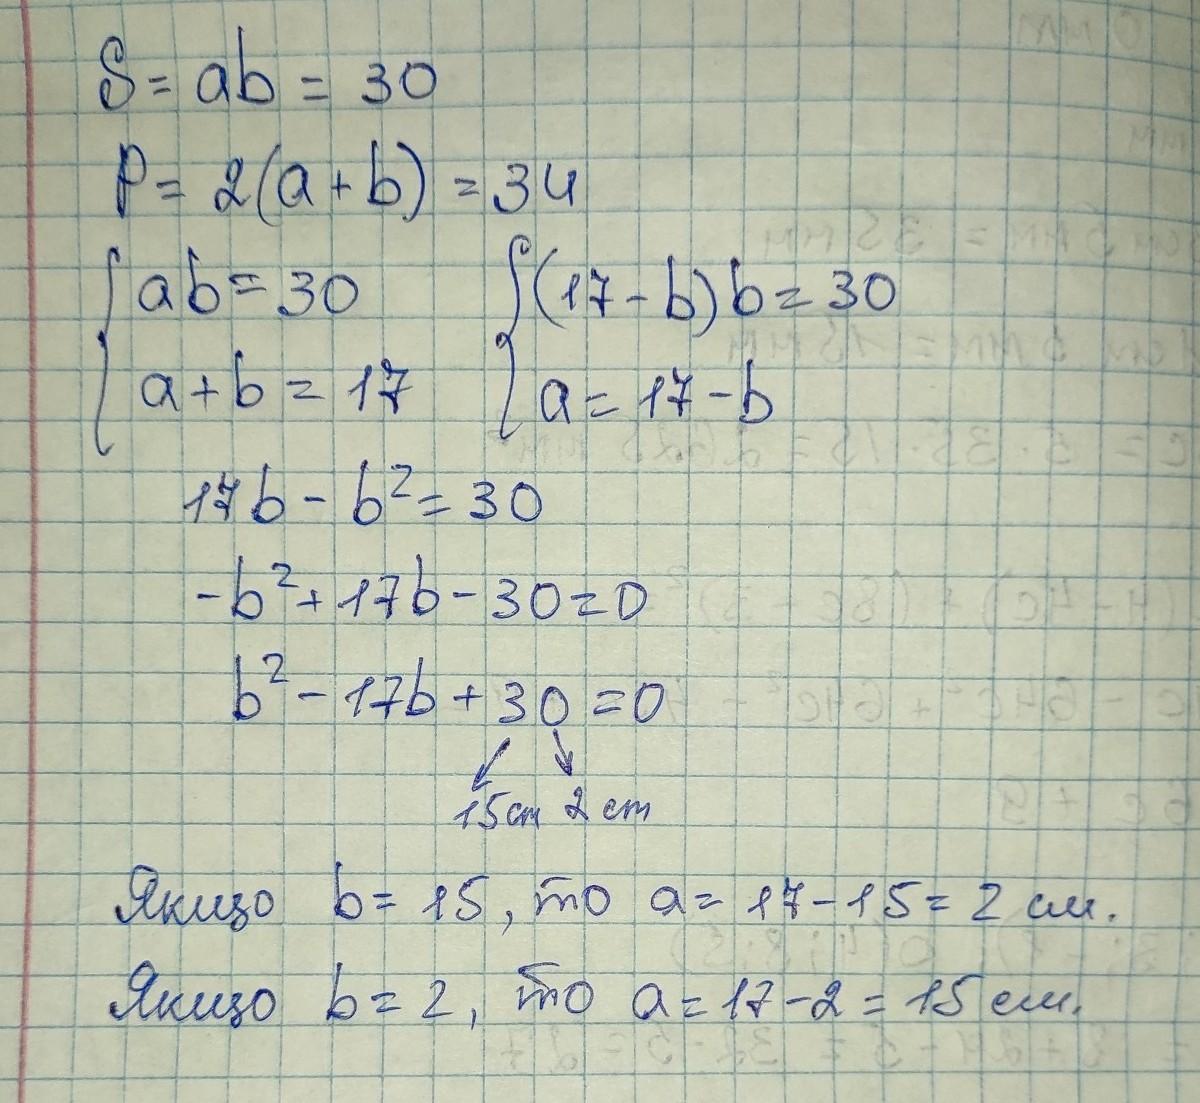 S = ab = 30
P = 2(a + b) = 34
{ ab = 30 { (17 - b) b = 30
a + b = 17 a = 17 - b
17b - b² = 30
-b² + 17b - 30 = 0
b² - 17b + 30 = 0
15 cm 2 cm
Якщо b = 15, то a = 17 - 15 = 2 см.
Якщо b = 2, то a = 17 - 2 = 15 см.